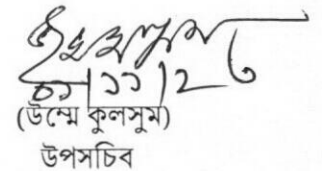 ০১|১১|২
(উম্মে কুলসুম)
উপসচিব